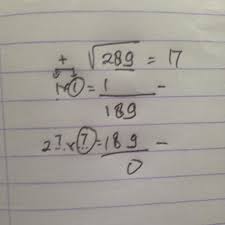 + √289 = 17
1×1 = 1 -
189
27×7 = 189 -
0